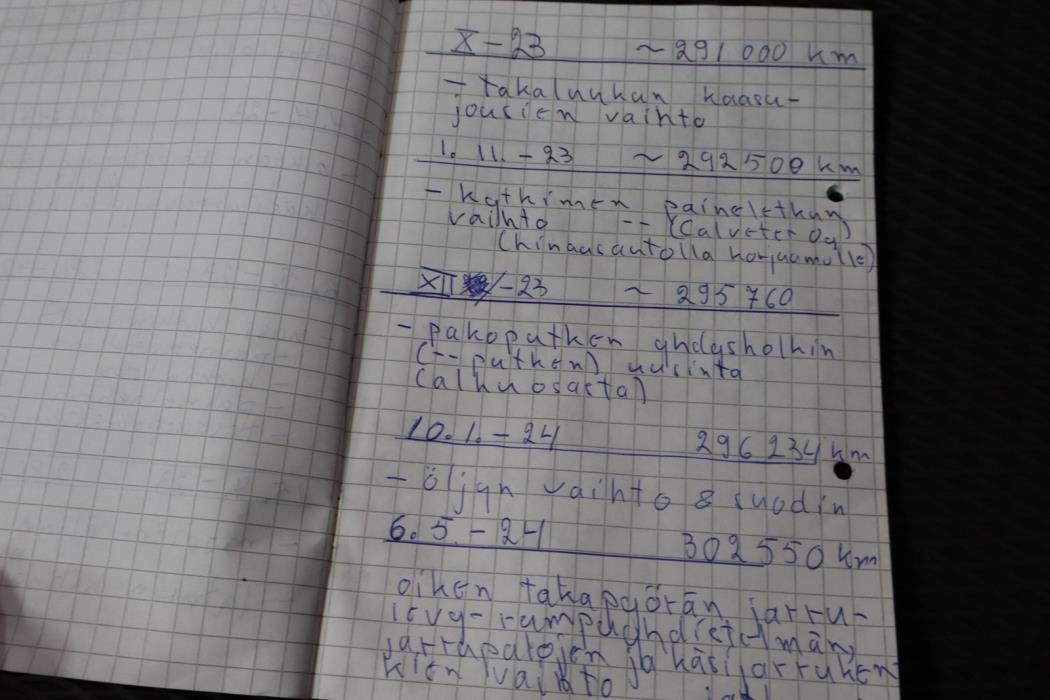 X - 23 ~ 291 000 km
- takaluukun kaasu-
jousien vaihto
1. 11. - 23 ~ 292 500 km
- kytkimen paineletkun
vaihto -- (Calveter Oy)
(hinausautolla korjaamolle)
XII - 23 ~ 295 760
- pakoputken yhdysholkin
(-- putken) uusinta
(alkuosasta)
10. 1. - 24 296 234 km
- Öljyn vaihto & suodin
6. 5. - 24 302 550 km
oiken takapyörän jarru-
levy-rumpuyhdistelmän,
jarrupalojen ja käsijarruken-
kien vaihto